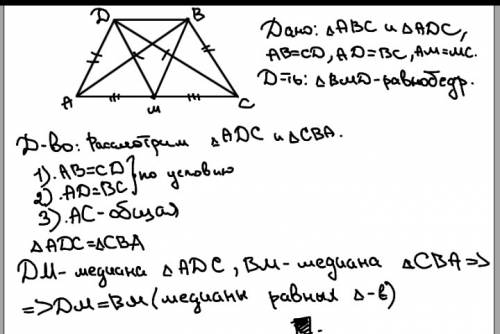 D B
A M C
Дано: △ABC и △ADC,
AB=CD, AD=BC, AM=MC.
Д-ть: △BMD-равнобедр.
Д-во: Рассмотрим △ADC и △CBA.
1). AB=CD } по условию
2). AD=BC
3). AC-общая
△ADC=△CBA
DM-медиана △ADC, BM-медиана △CBA =>
=> DM=BM (медианы равных △-в)